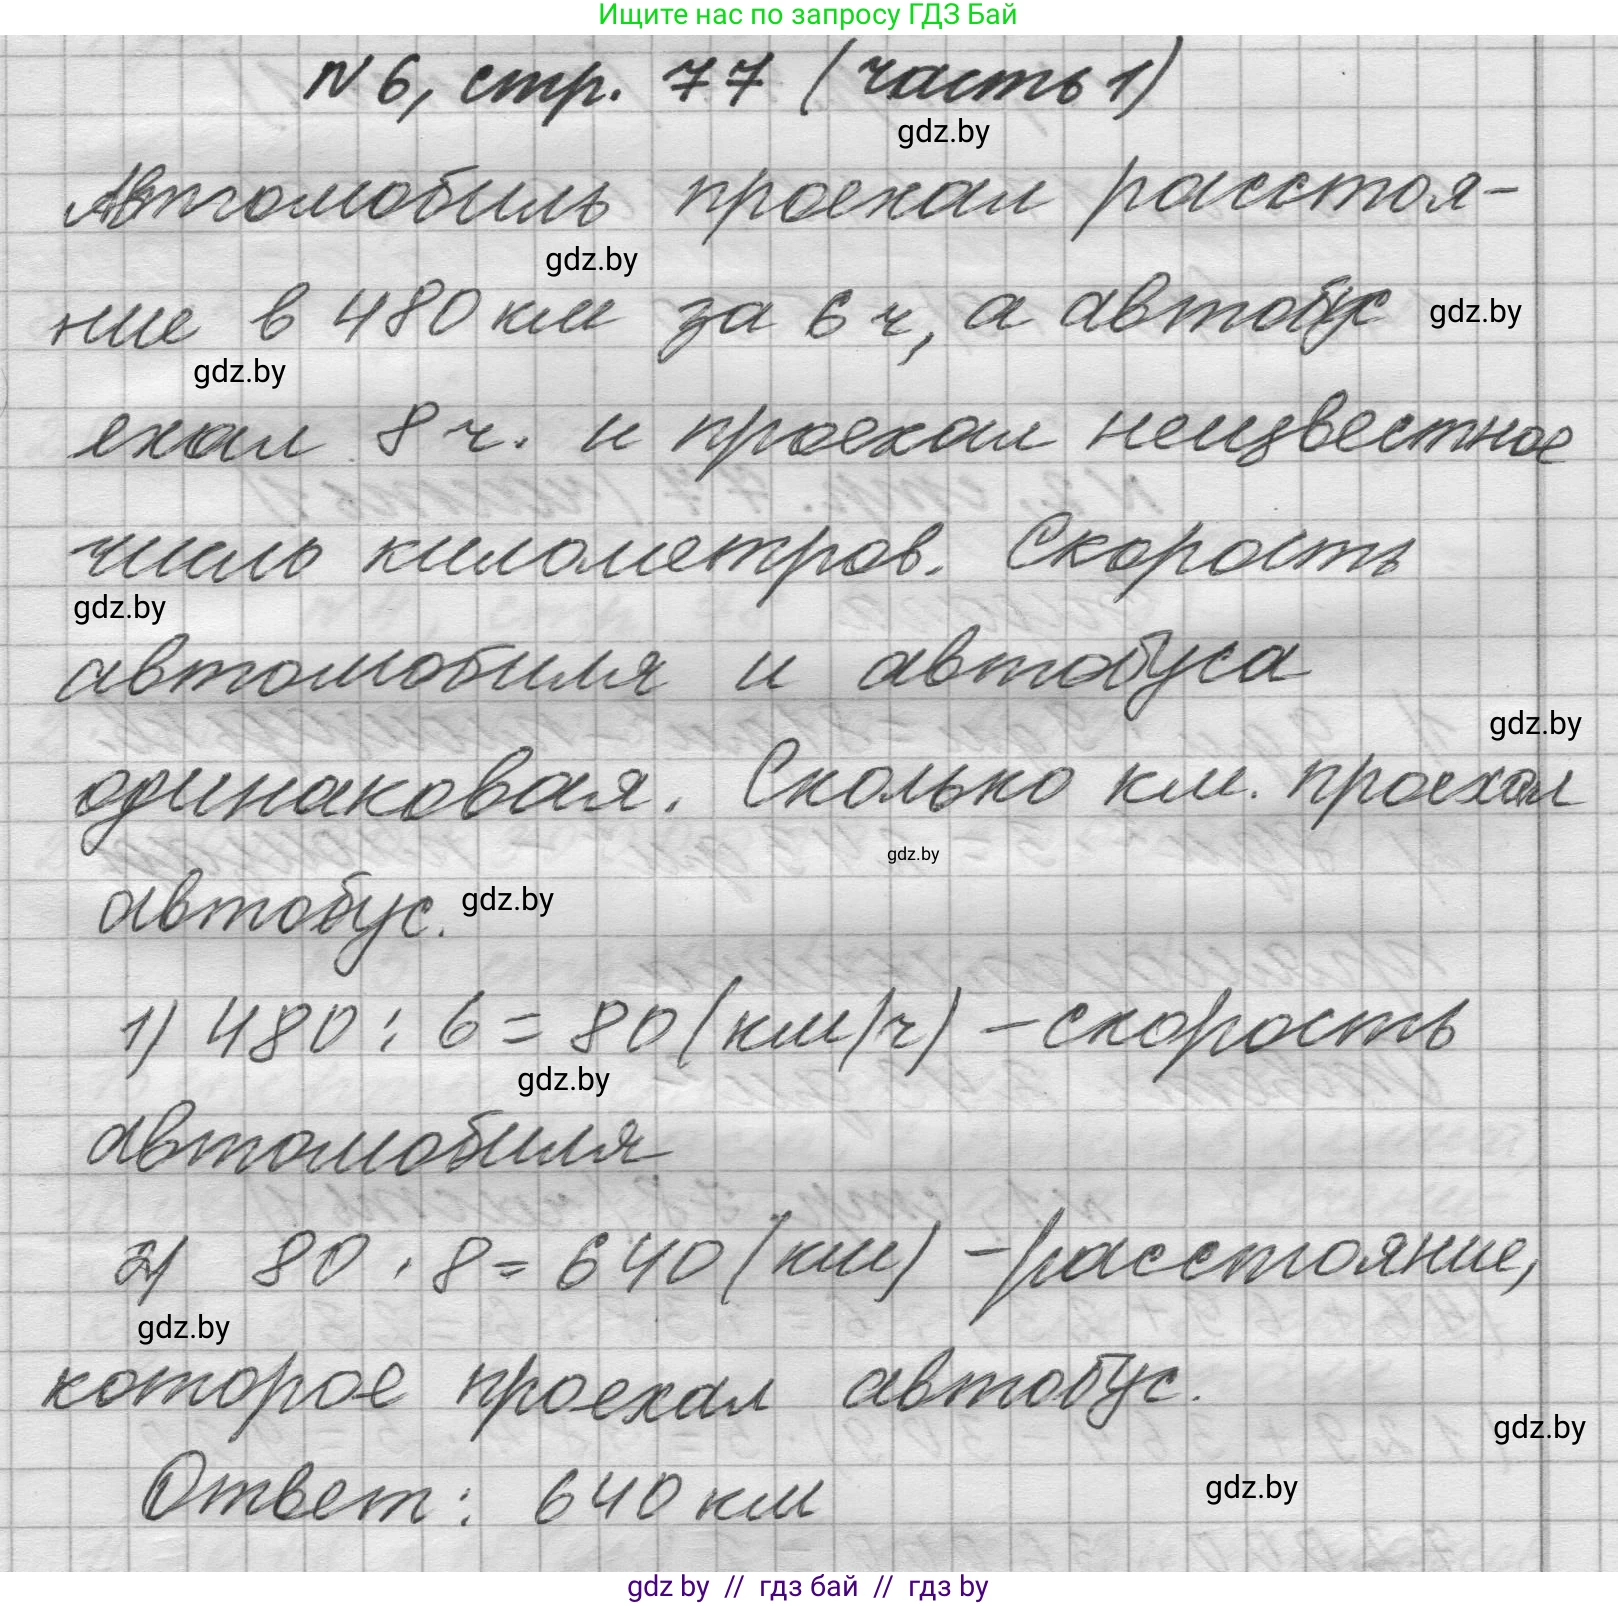 Ищите нас по запросу ГДЗ Бай
N6, стр. 77 (часть 1)
gdz.by
Автомобиль проехал расстоя-
gdz.by
ние в 480 км за 6 ч, а автобус
gdz.by
gdz.by
ехал 8 ч. и проехал неизвестное
число километров. Скорость
gdz.by
автомобиля и автобуса
gdz.by
одинаковая. Сколько км. проехал
gdz.by
автобус.
gdz.by
1) 480 : 6 = 80 (км/ч) - скорость
gdz.by
автомобиля
2) 80 · 8 = 640 (км) - расстояние,
gdz.by
которое проехал автобус.
gdz.by
Ответ: 640 км
gdz.by
gdz by // гдз бай // гдз by